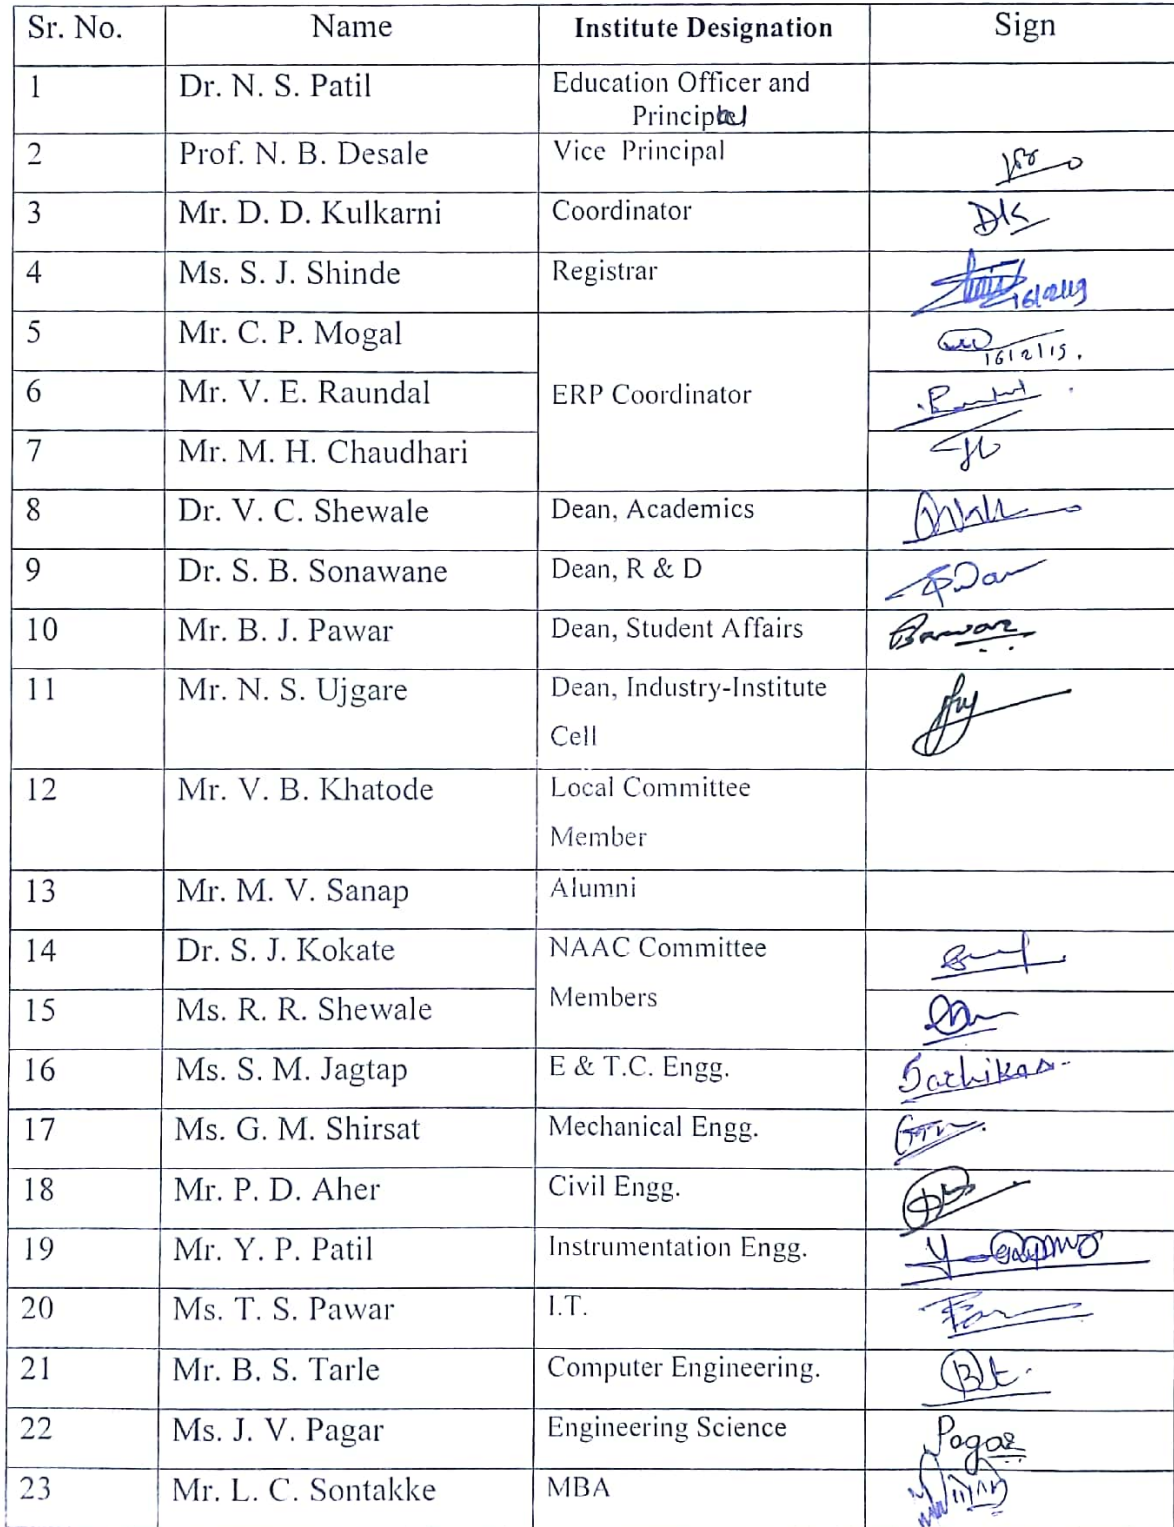 Sr. No. Name Institute Designation Sign
1 Dr. N. S. Patil Education Officer and
Principal
2 Prof. N. B. Desale Vice Principal
3 Mr. D. D. Kulkarni Coordinator DK
4 Ms. S. J. Shinde Registrar
5 Mr. C. P. Mogal
16/2/19.
6 Mr. V. E. Raundal ERP Coordinator
7 Mr. M. H. Chaudhari
8 Dr. V. C. Shewale Dean, Academics
9 Dr. S. B. Sonawane Dean, R & D
10 Mr. B. J. Pawar Dean, Student Affairs
11 Mr. N. S. Ujgare Dean, Industry-Institute
Cell
12 Mr. V. B. Khatode Local Committee
Member
13 Mr. M. V. Sanap Alumni
14 Dr. S. J. Kokate NAAC Committee
Members
15 Ms. R. R. Shewale
16 Ms. S. M. Jagtap E & T.C. Engg.
17 Ms. G. M. Shirsat Mechanical Engg.
18 Mr. P. D. Aher Civil Engg.
19 Mr. Y. P. Patil Instrumentation Engg.
20 Ms. T. S. Pawar I.T.
21 Mr. B. S. Tarle Computer Engineering.
22 Ms. J. V. Pagar Engineering Science Pagar
23 Mr. L. C. Sontakke MBA